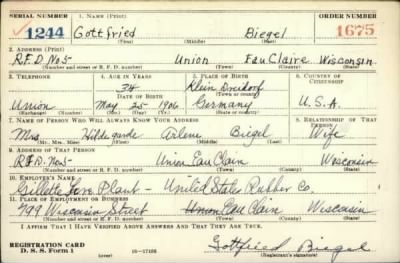 SERIAL NUMBER 1. NAME (Print) ORDER NUMBER
1244 Gottfried Biegel 1675
(First) (Middle) (Last)
2. ADDRESS (Print)
R.F.D. No 5 Union Eau Claire Wisconsin
(Number and street or R. F. D. number) (Town) (County) (State)
3. TELEPHONE 4. AGE IN YEARS 5. PLACE OF BIRTH 6. COUNTRY OF CITIZENSHIP
34 Klein
DATE OF BIRTH (Town or county)
Union May 25 1906 Germany U.S.A.
(Exchange) (Number) (Mo.) (Day) (Yr.) (State or country)
7. NAME OF PERSON WHO WILL ALWAYS KNOW YOUR ADDRESS 8. RELATIONSHIP OF THAT PERSON
Mrs Hildegarde Arlene Biegel Wife
(Mr., Mrs., Miss) (First) (Middle) (Last)
9. ADDRESS OF THAT PERSON
R.F.D. No 5 Union Eau Claire Wisconsin
(Number and street or R. F. D. number) (Town) (County) (State)
10. EMPLOYER'S NAME
Gillette Tire Plant - United States Rubber Co.
11. PLACE OF EMPLOYMENT OR BUSINESS
799 Wisconsin Street Union Eau Claire Wisconsin
(Number and street or R. F. D. number) (Town) (County) (State)
I AFFIRM THAT I HAVE VERIFIED ABOVE ANSWERS AND THAT THEY ARE TRUE.
REGISTRATION CARD
D. S. S. Form 1 (over) 16-17105 Gottfried Biegel
(Registrant's signature)